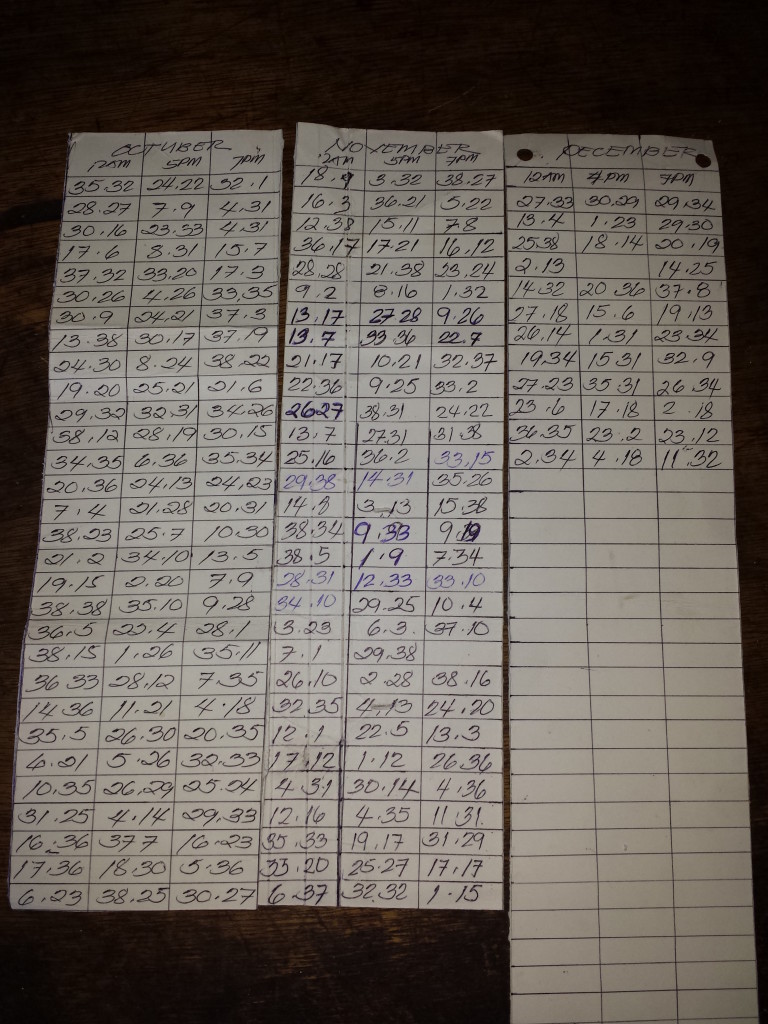 OCTUBER
12AM 5PM 7PM
35.32 24.22 32.1
28.27 7.9 4.31
30.16 23.33 4.31
17.6 8.31 15.7
37.32 33.20 17.3
30.26 4.26 33,35
30.9 24,21 37.3
13.38 30.17 37.19
24.30 8.24 38.22
19.20 25.21 21.6
29.32 32.31 34.26
38.12 28.19 30.15
34.35 6.36 35.34
20.36 24.13 24,23
7.4 21.28 20.31
38.23 25.7 10.30
21.2 34.10 13.5
19.15 2.20 7.9
38.38 35.10 9.28
36.5 22.4 28.1
38.15 1.26 35.11
36 33 28.12 7.35
14 36 11.21 4.18
35.5 26.30 20.35
6.21 5.26 32.33
10.35 26,29 25.24
31.25 4.14 29,33
16.36 37 7 16.23
17.36 18.30 5.36
6.23 38.25 30.27
NOVEMBER
12AM 5PM 7PM
18.9 3.32 38.27
16.3 36.21 5.22
12.38 15.11 7.8
36.17 17.21 16.12
28.28 21.38 23,24
9.2 8.16 1.32
13.17 27 28 9.26
19.7 33 36 22.7
21.17 10.21 32.37
22.36 9.25 33.2
26 27 38.31 24.22
13.7 27.31 31 38
25.16 36.2 33.15
29.38 14.31 35.26
14.8 3.13 15.38
38.34 9.33 9.19
38.5 1.9 7.34
28.31 12.33 33.10
34.10 29.25 10.4
3.23 6.3 37.10
7.1 29.38
26.10 2.28 38.16
32 35 4.13 24.20
12.1 22.5 13.3
17.12 1.12 26.36
4 31 30.14 4.36
12.16 4.35 11 31
35.33 19.17 31.29
33.20 25.27 17.17
6.37 32.32 1.15
DECEMBER
12AM 4PM 7PM
27.33 30.29 29.34
13.4 1.23 29.30
25 38 18.14 20.19
2.13 14.25
14.32 20 36 37.8
27.18 15.6 19.13
26.14 1.31 23.34
19.34 15 31 32.9
27.23 35 31 26 34
23.6 17.18 2.18
36.35 23.2 23.12
2.34 4.18 11.32